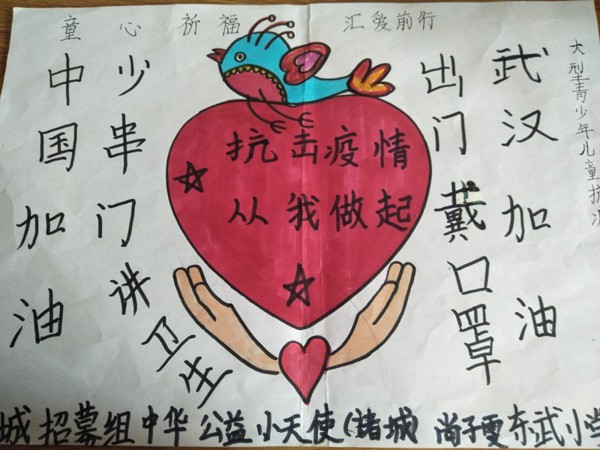 童心祈福 汇爱前行
中国加油
少串门讲卫生
抗击疫情
从我做起
出门戴口罩
武汉加油
大型青少年儿童抗
城招募组中华公益小天使(诸城)尚子雯东武小学